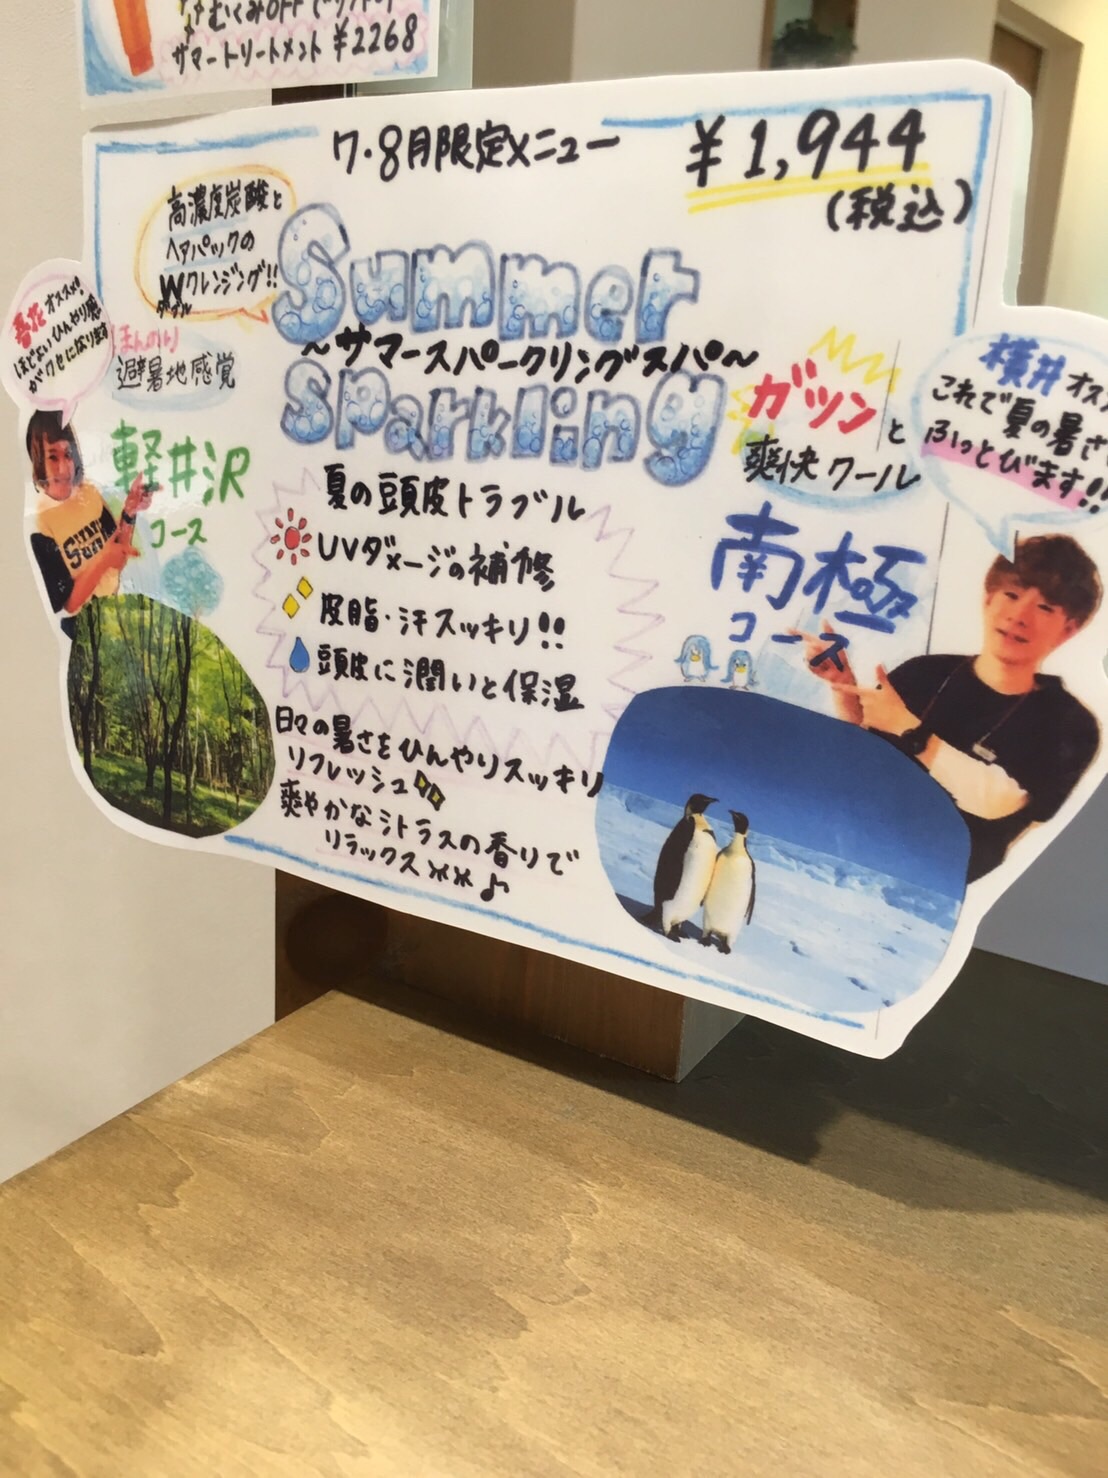 むくみOFFでリフトUP
サマートリートメント ¥2268
7・8月限定メニュー
¥1,944
(税込)
高濃度炭酸と
ヘアパックの
Wクレンジング!!
ダブル
Summer
～サマースパークリングスパ～
Sparkling
オススメ!
ほどよいひんやり感
がクセになります
ほんのり
避暑地感覚
軽井沢
コース
夏の頭皮トラブル
UVダメージの補修
皮脂・汗スッキリ!!
頭皮に潤いと保湿
日々の暑さをひんやりスッキリ
リフレッシュ
爽やかなシトラスの香りで
リラックス
ガツンと
爽快クール
南極
コース
横井オスス
これで夏の暑さも
ふっとびます!!